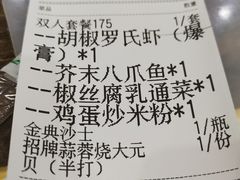 菜品 数量
双人套餐175 1/套
--胡椒罗氏虾（爆
膏）*1
--芥末八爪鱼*1
--椒丝腐乳通菜*1
--鸡蛋炒米粉*1
金典沙士 1/瓶
招牌蒜蓉烧大元 1/份
贝（半打）